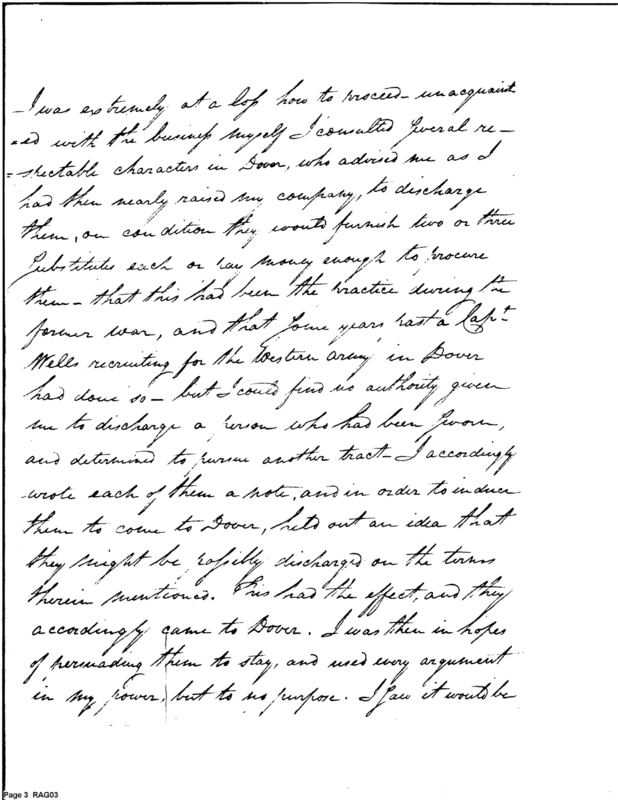 -I was extremely at a loss how to proceed - unacquaint
=ed with the business myself I consulted several re-
=spectable characters in Dover, who advised me as I
had then nearly raised my company, to discharge
them, on condition they would furnish two or three
Substitutes each or pay money enough to procure
them - that this had been the practice during the
former war, and that some years past a Capt.
Wells recruiting for the Western army in Dover
had done so - but I could find no authority given
me to discharge a person who had been sworn,
and determined to pursue another tract - I accordingly
wrote each of them a note, and in order to induce
them to come to Dover, held out an idea that
they might be possibly discharged on the terms
therein mentioned. This had the effect, and they
accordingly came to Dover. I was then in hopes
of persuading them to stay, and used every argument
in my power, but to no purpose. I saw it would be
Page 3 RAG03